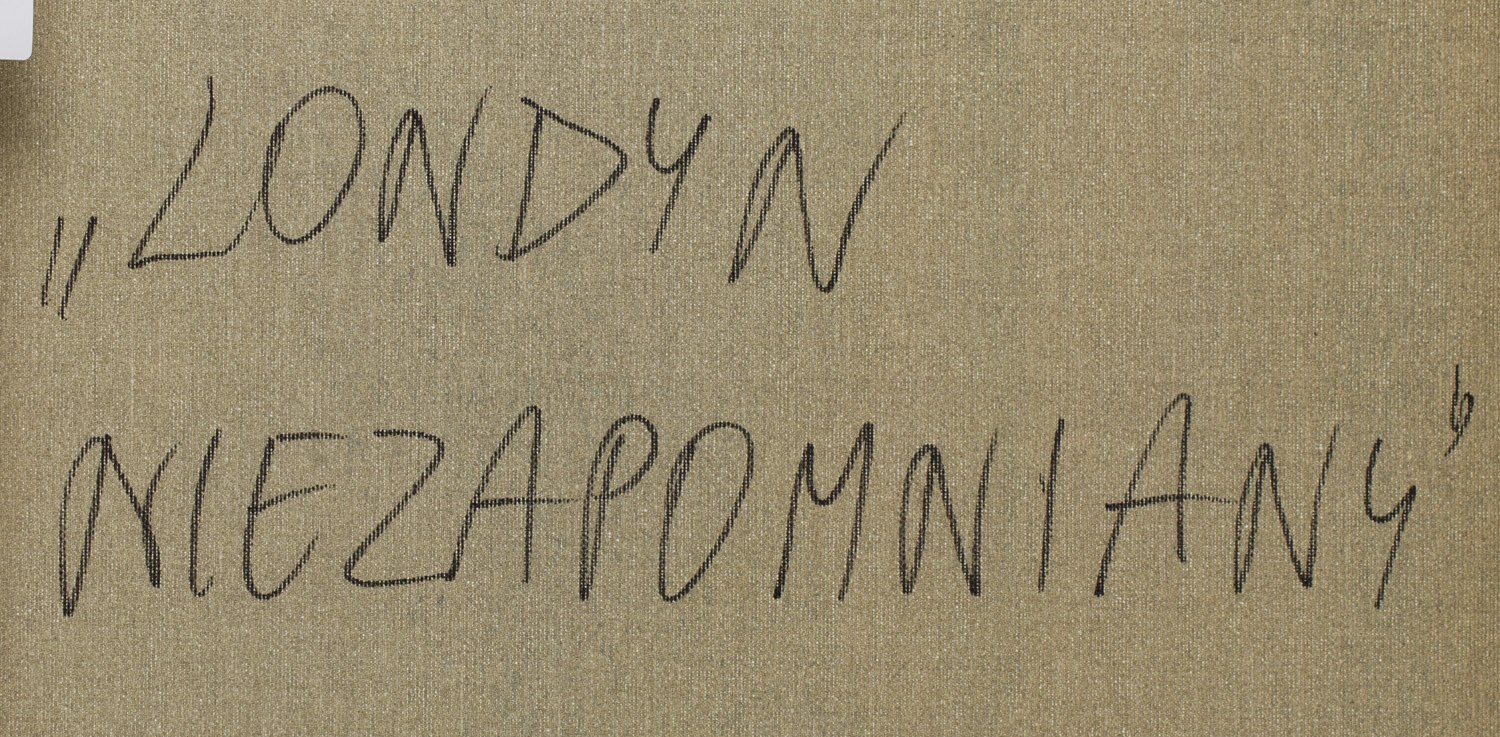 „LONDYN
NIEZAPOMNIANY”